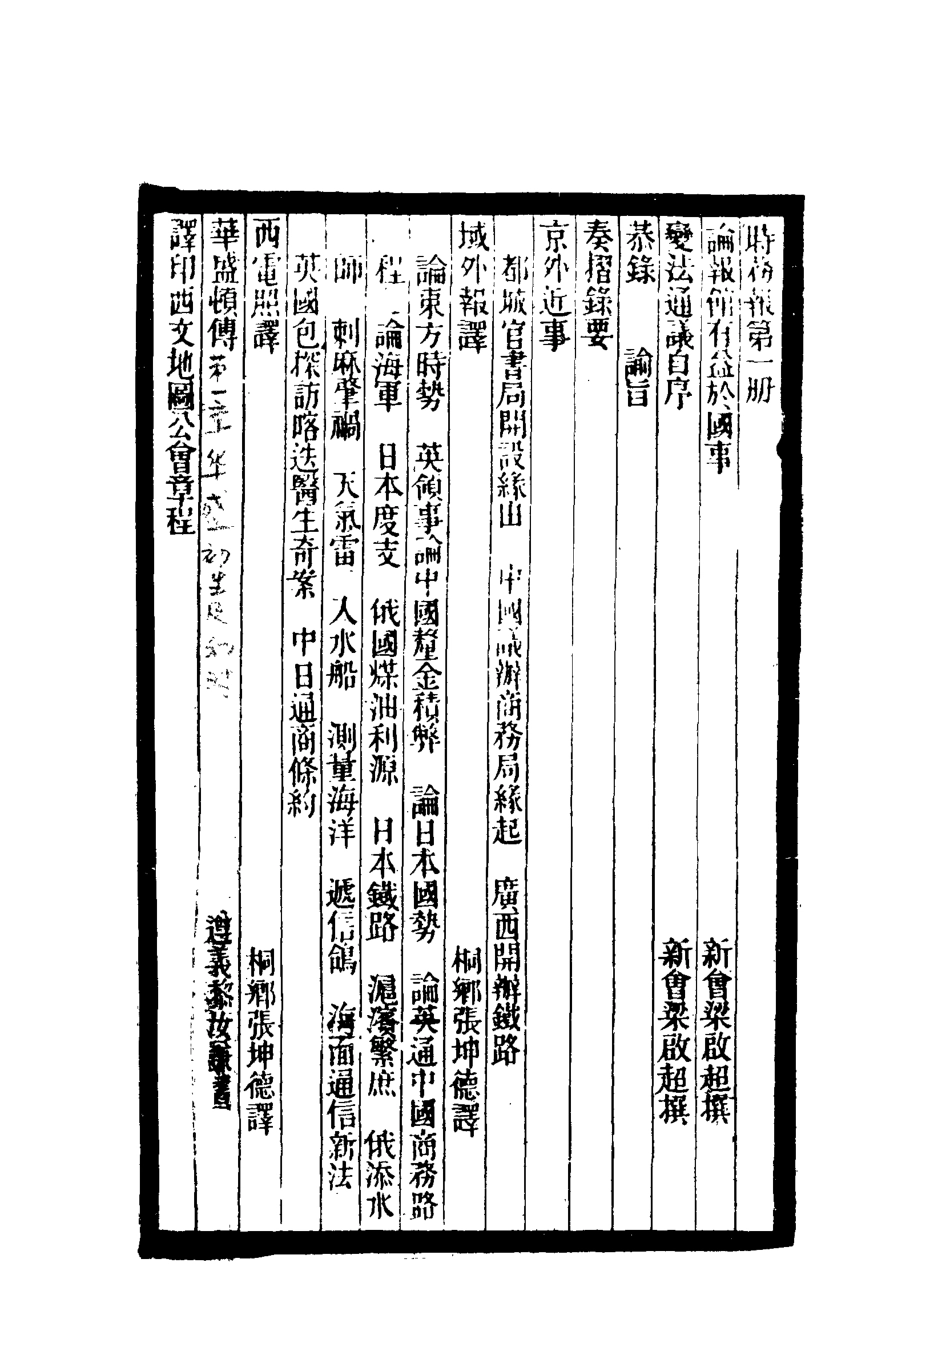 時務報第一册
論報館有益於國事　新會梁啟超撰
變法通議自序　新會梁啟超撰
恭錄　諭旨
奏摺錄要
京外近事
都城官書局開設緣由　中國議辦商務局緣起　廣西開辦鐵路
域外報譯　桐鄉張坤德譯
論東方時勢　英領事論中國釐金積弊　論日本國勢　論英通中國商務路
程　論海軍　日本度支　俄國煤油利源　日本鐵路　滬濱繁庶　俄添水
師　刺麻肇禍　天氣雷　入水船　測量海洋　遞信鴿　海面通信新法
英國包探訪喀迭醫生奇案　中日通商條約
西電照譯　桐鄉張坤德譯
華盛頓傳　第一章　華盛　初生及幼　遵義黎汝謙書
譯印西文地圖公會章程